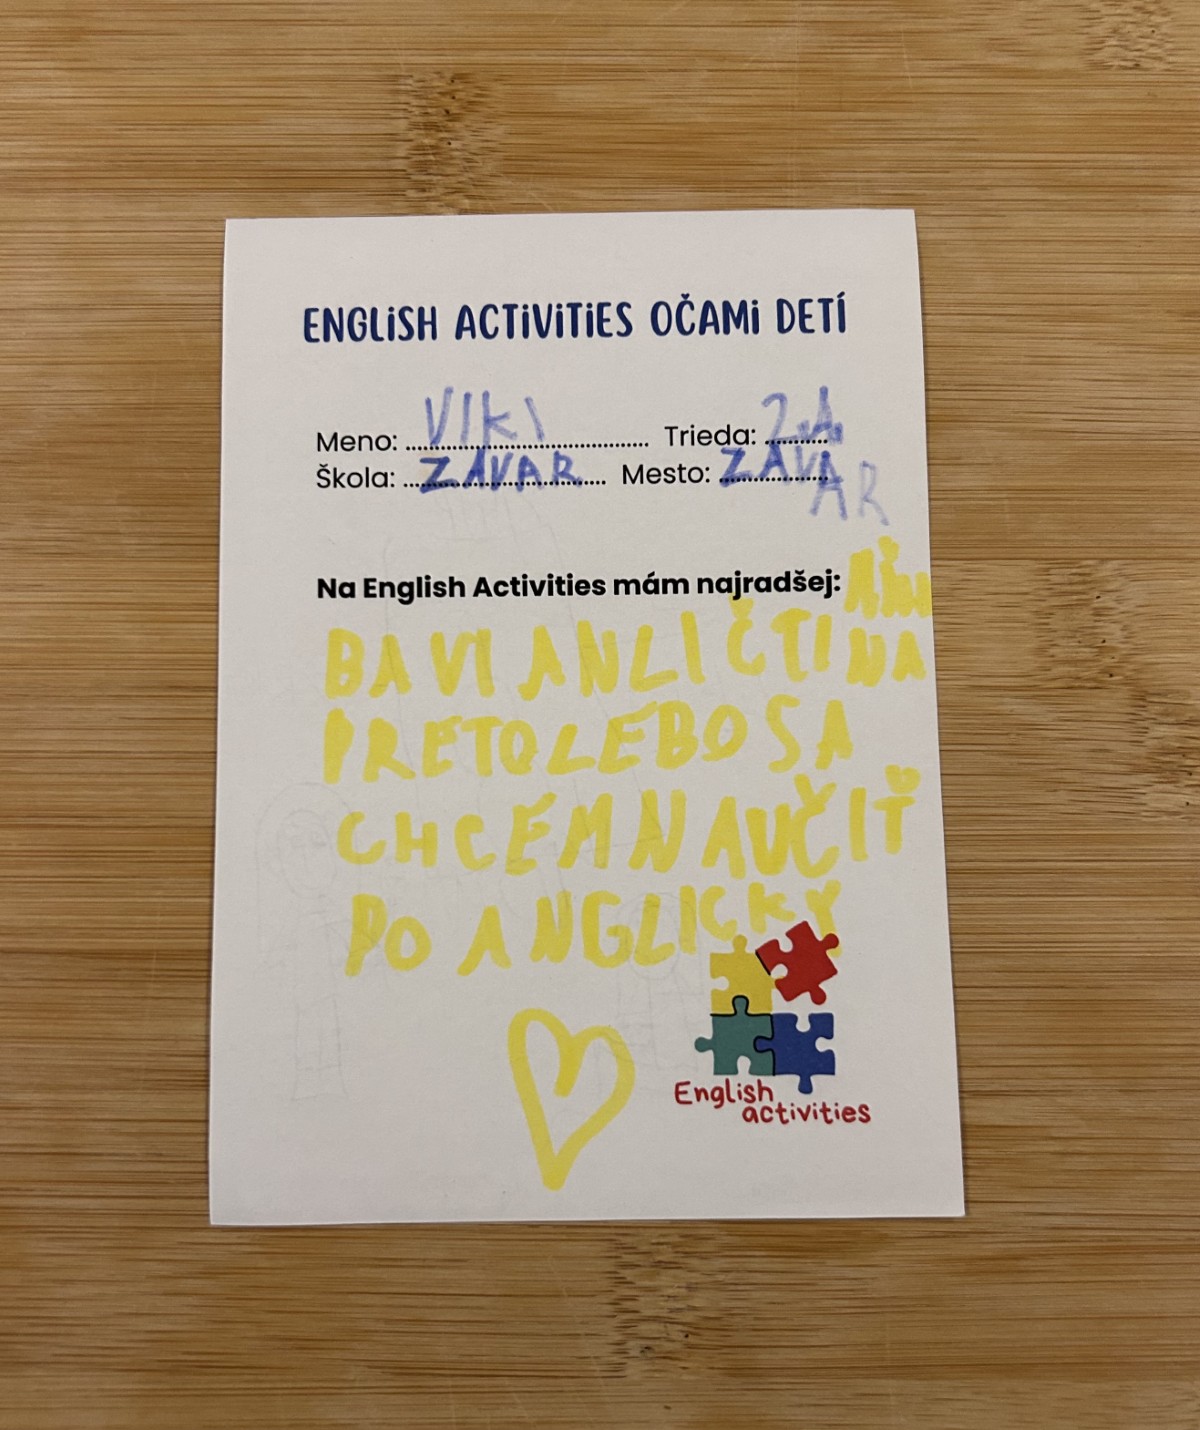 ENGLISH ACTIVITIES OČAMI DETÍ
Meno: VIKI Trieda: 2.A.
Škola: ZAVAR Mesto: ZAVA
AR
Na English Activities mám najradšej:
BAVI ANLIČTINA
PRETOLEBO SA
CHCEM NAUČIŤ
PO ANGLICKY
English
activities